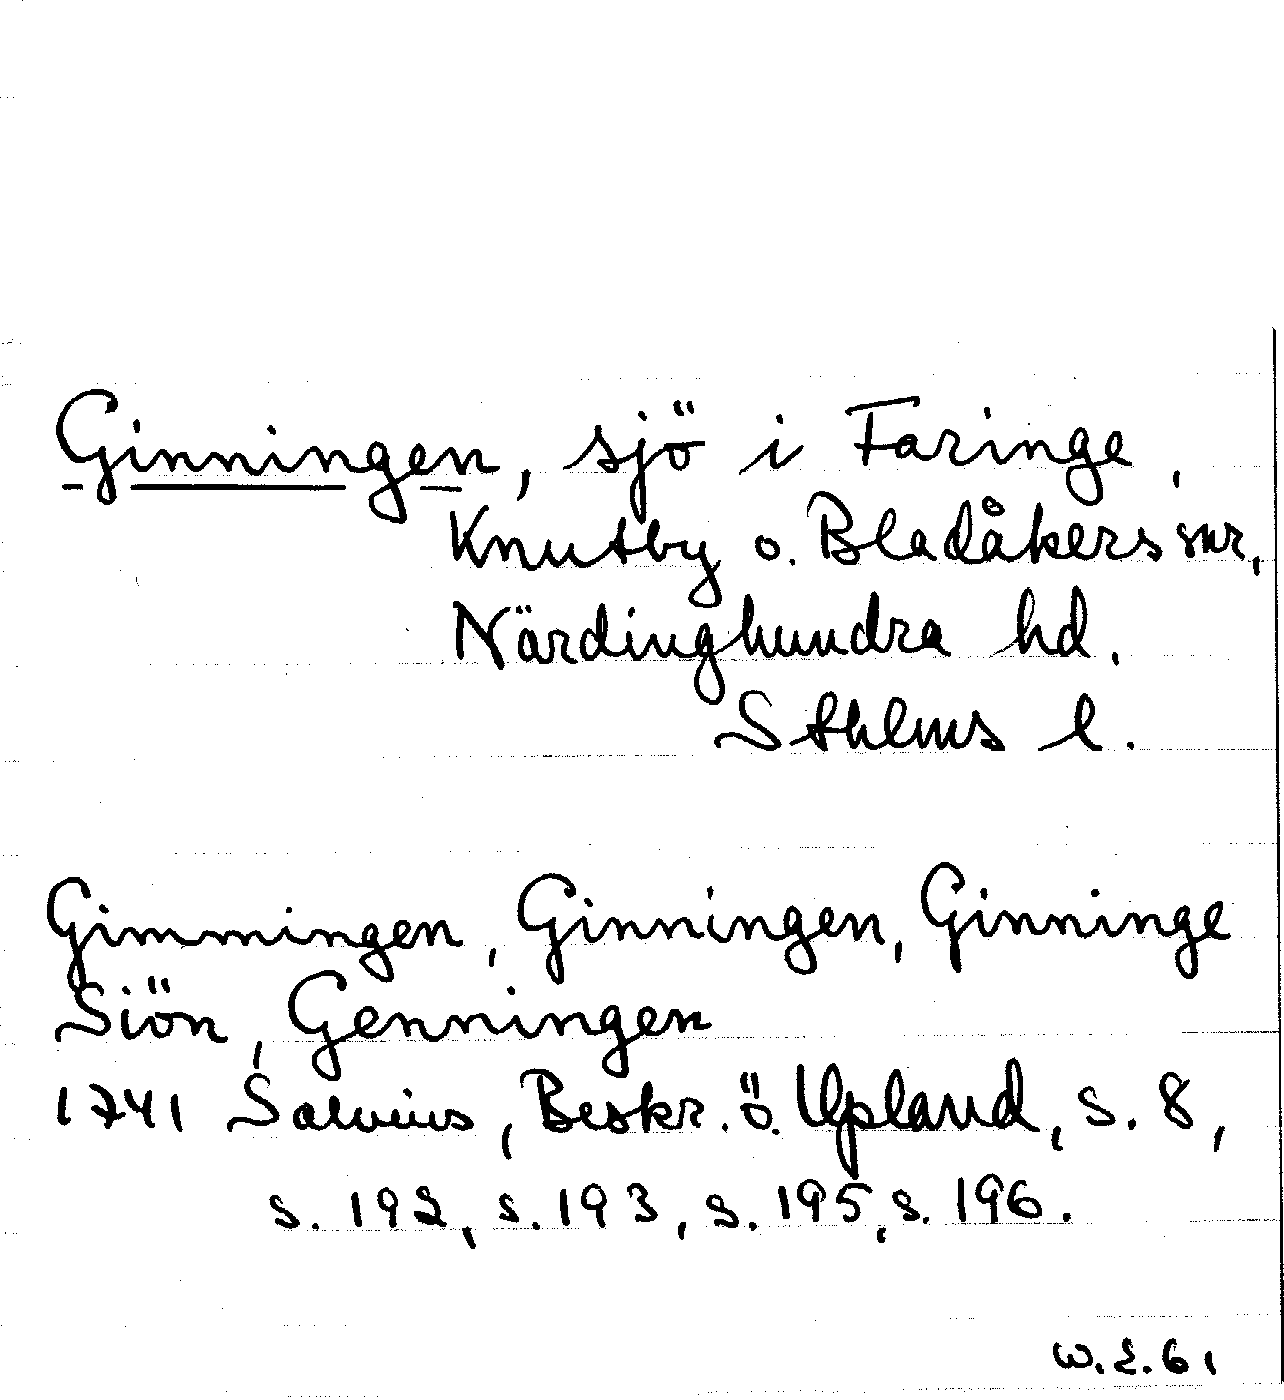 Ginningen, sjö i Faringe,
Knutby o. Bladåkers snr,
Närdinghundra hd.
Sthlms l.
Gimmingen, Ginningen, Ginninge
Siön, Genningen
1741 Salvius, Beskr. ö. Upland, s. 8,
s. 192, s. 193, s. 195, s. 196.
W.E. 61